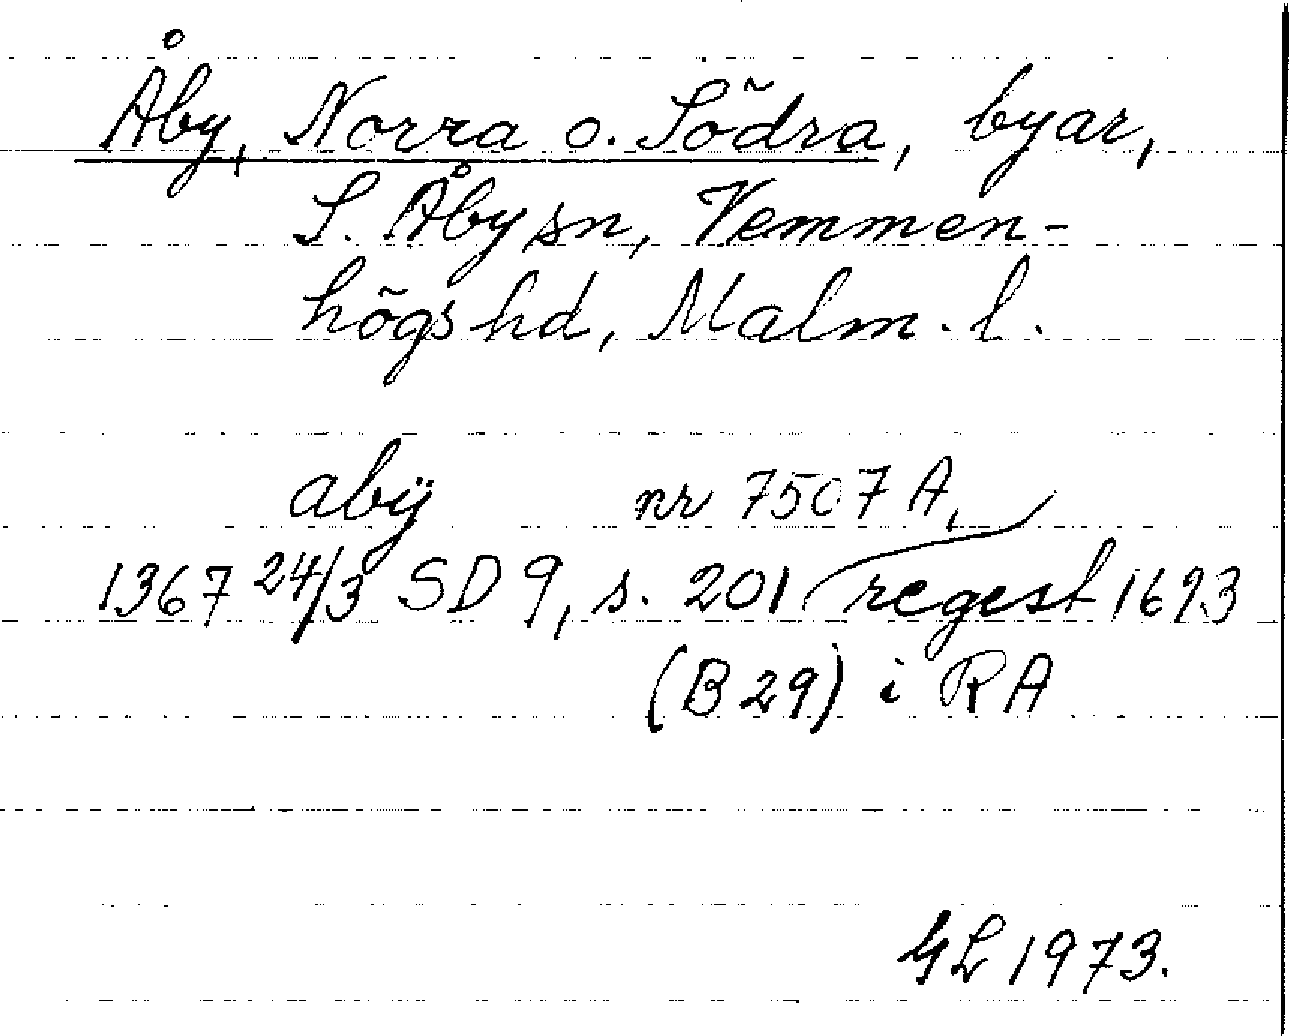 Åby, Norra o. Södra, byar,
S. Åby sn, Vemmen-
högs hd, Malm. l.
abÿ nr 7507 A,
1367 24/3 SD 9, s. 201 regest 1693
(B 29) i RA
GL 1973.